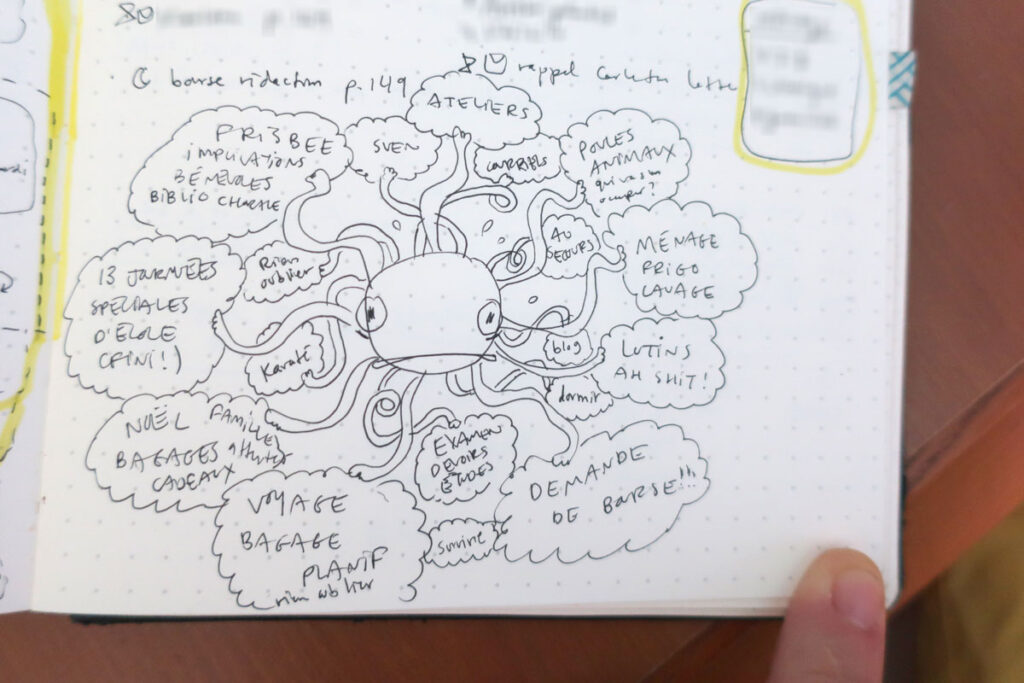 bourse rédaction p.149
rappel Carleton lettre
ATELIERS
FRISBEE
IMPLICATIONS
BÉNÉVOLES
BIBLIO CHORALE
SVEN
COURRIELS
POULES
ANIMAUX
qui va s'en
occuper?
AU
SECOURS
MÉNAGE
FRIGO
LAVAGE
13 JOURNÉES
SPÉCIALES
D'ÉCOLE
(FINI!)
Rien
oublier
Karaté
blog
LUTINS
AH SHIT!
dormir
NOËL FAMILLE
BAGAGES
CADEAUX
EXAMEN
DEVOIRS
ÉTUDES
DEMANDE
DE BOURSE!!!
VOYAGE
BAGAGE
PLANIF
rien oublier
survivre